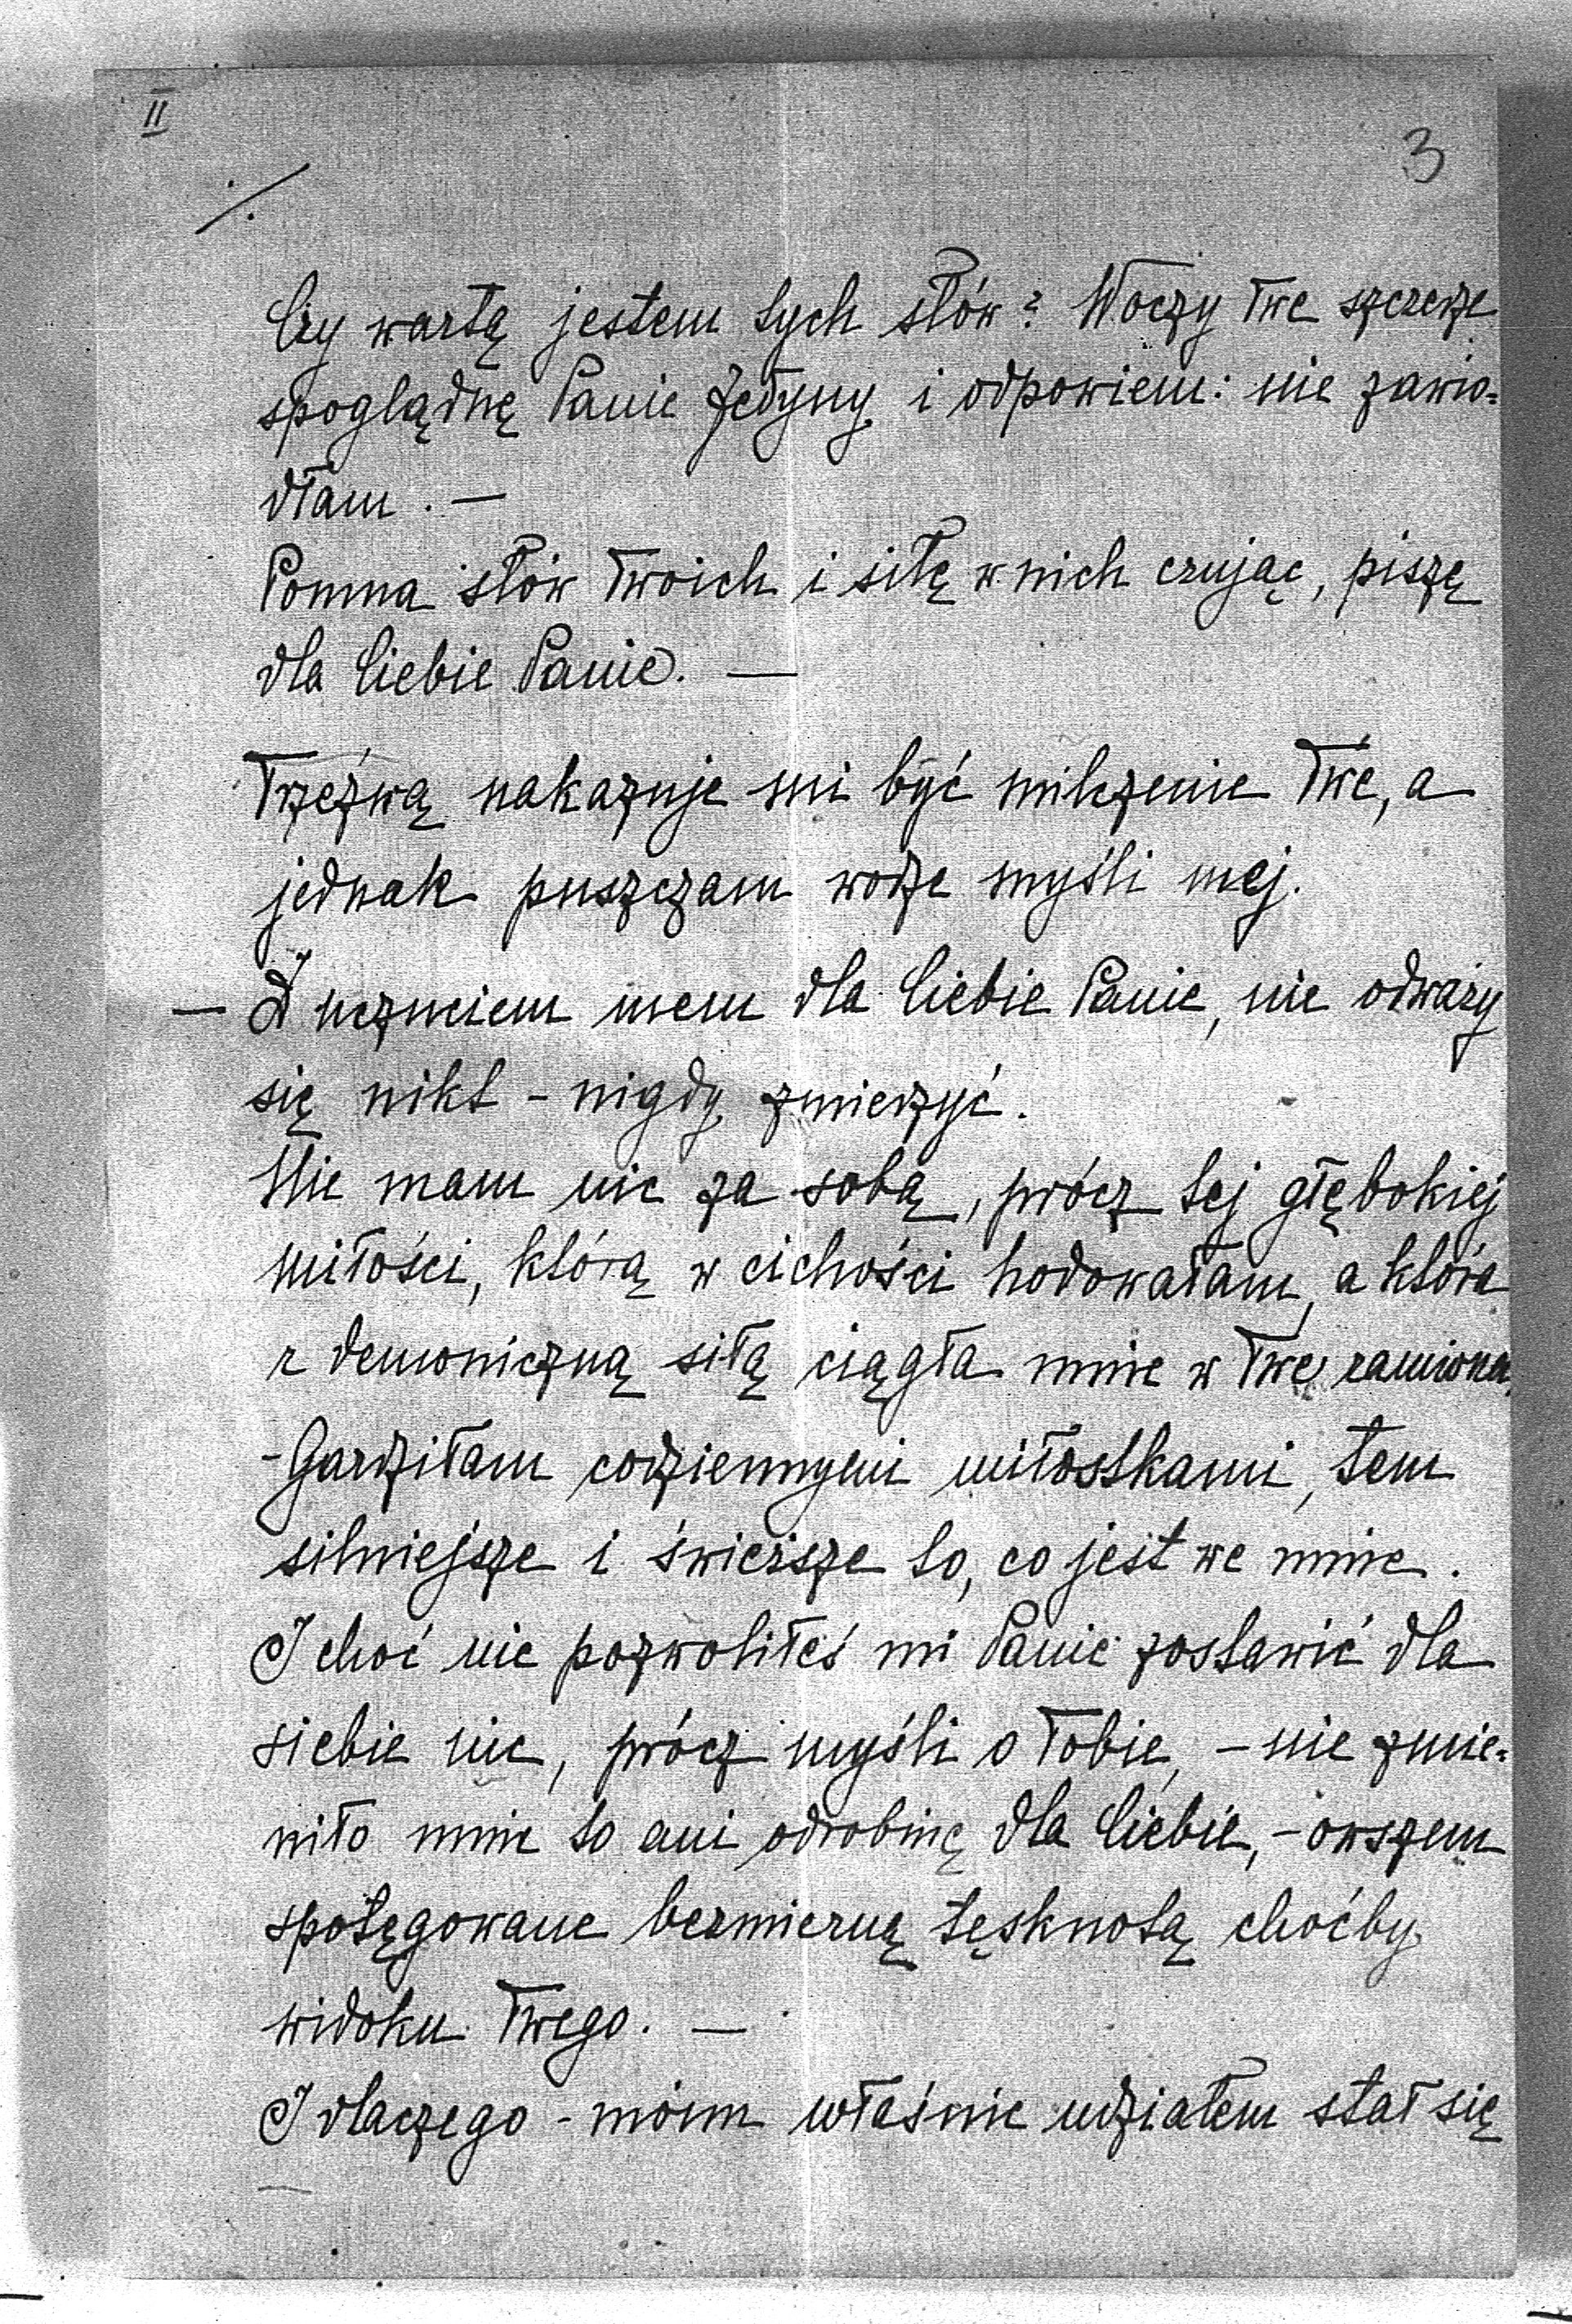 II
3
./.
Czy wartą jestem tych słów? W oczy Twe szczerze
spoglądnę Panie Jedyny i odpowiem: nie zawio=
dłam. —
Pomna słów Twoich i siłę w nich czując, piszę
dla Ciebie Panie. —
Trzeźwą nakazuje mi być milczenie Twe, a
jednak puszczam wodze myśli mej.
— Z uczuciem mem dla Ciebie Panie, nie odważy
się nikt - nigdy zmierzyć.
Nie mam nic za sobą, prócz tej głębokiej
miłości, którą w cichości hodowałam, a która
z demoniczną siłą ciągła mnie w Twe ramiona.
- Gardziłam codziennymi miłostkami, tem
silniejsze i świeższe to, co jest we mnie.
I choć nie pozwoliłeś mi Panie zostawić dla
siebie nic, prócz myśli o Tobie, - nie zmie=
niło mnie to ani odrobinę dla Ciebie, - owszem
spotęgowane bezmierną tęsknotą choćby
widoku Twego. —
I dlaczego - moim właśnie udziałem stał się